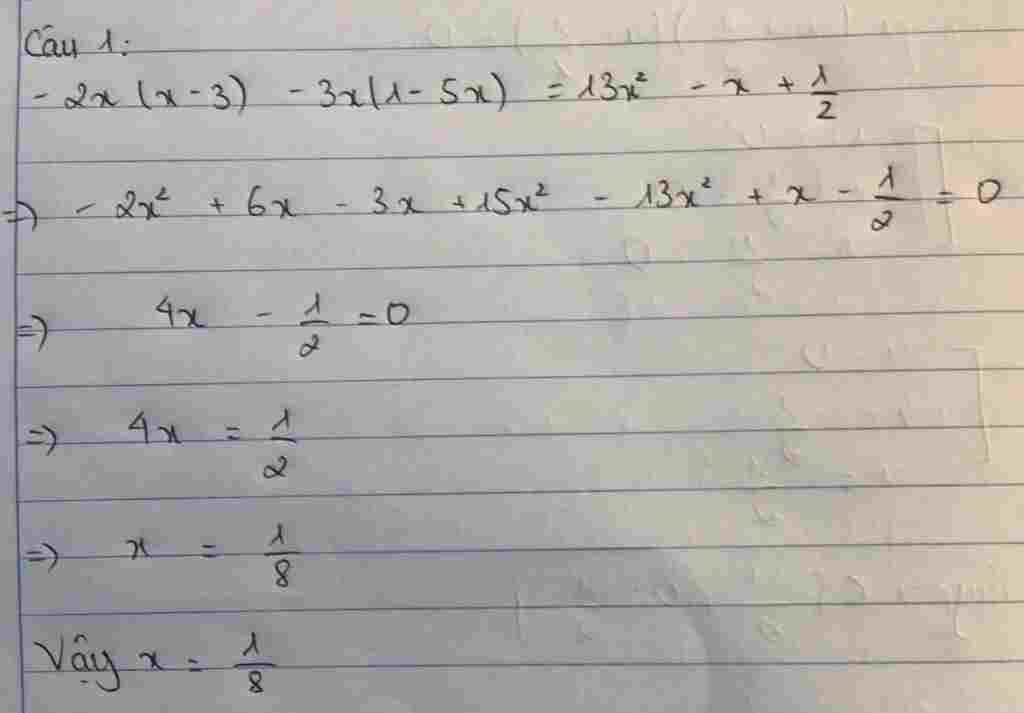 Câu 1:
- 2x (x - 3) - 3x(1 - 5x) = 13x² - x + 1/2
=> - 2x² + 6x - 3x + 15x² - 13x² + x - 1/2 = 0
=> 4x - 1/2 = 0
=> 4x = 1/2
=> x = 1/8
Vậy x = 1/8